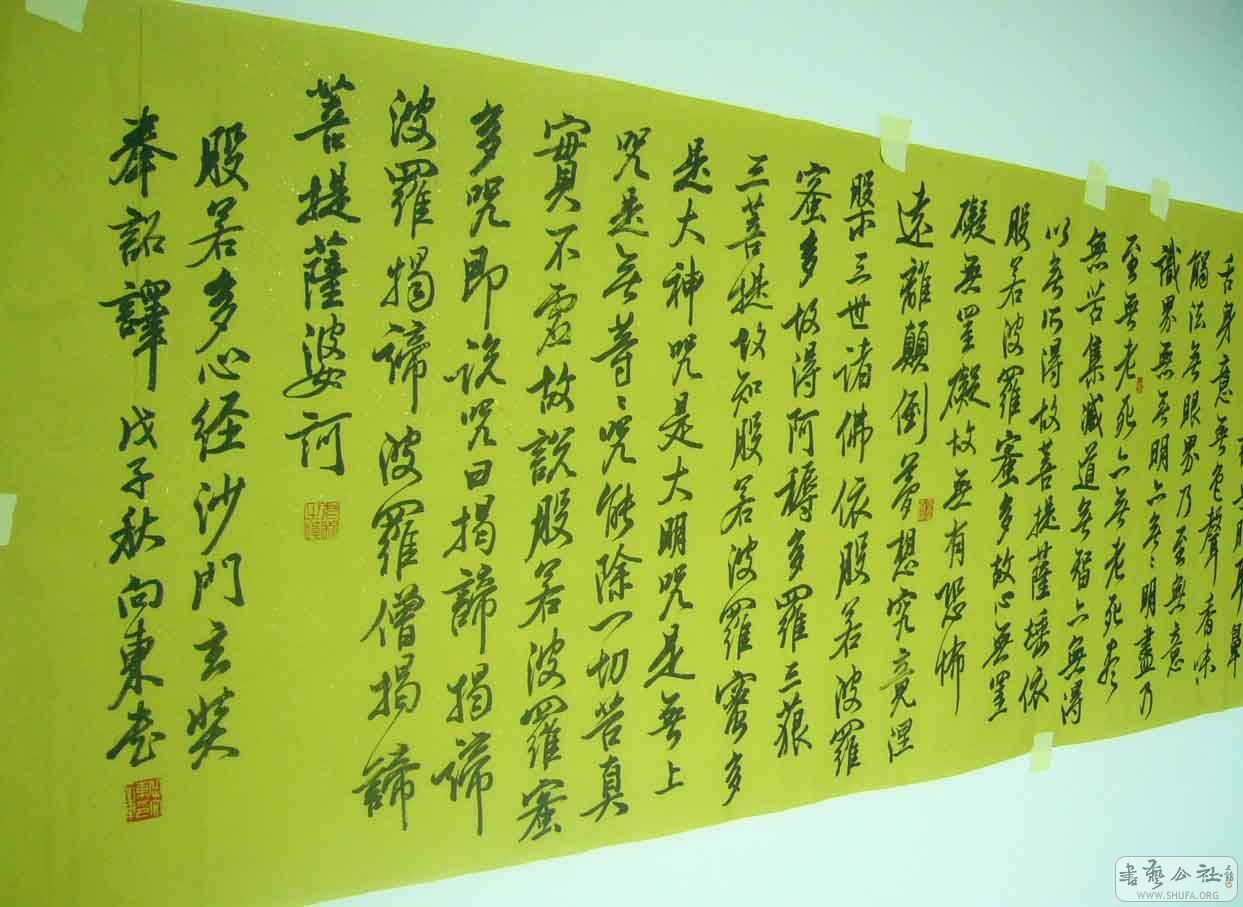 舌身意无色聲香味
觸法无眼界乃至無意
識界無无明亦无々明盡乃
至無老死亦无老死盡
無苦集滅道无智亦無得
以无所得故菩提薩埵依
般若波羅蜜多故心無罣
礙無罣礙故無有恐怖
遠離顛倒夢想究竟涅
槃三世諸佛依般若波羅
蜜多故得阿耨多羅三藐
三菩提故知般若波羅蜜多
是大神咒是大明咒是無上
咒是无等々咒能除一切苦真
實不虛故說般若波羅蜜
多咒即說咒曰揭諦揭諦
波羅揭諦波羅僧揭諦
菩提薩婆訶
般若多心经沙門玄奘
奉詔譯戊子秋向東書
書藝公社
WWW.SHUFA.ORG